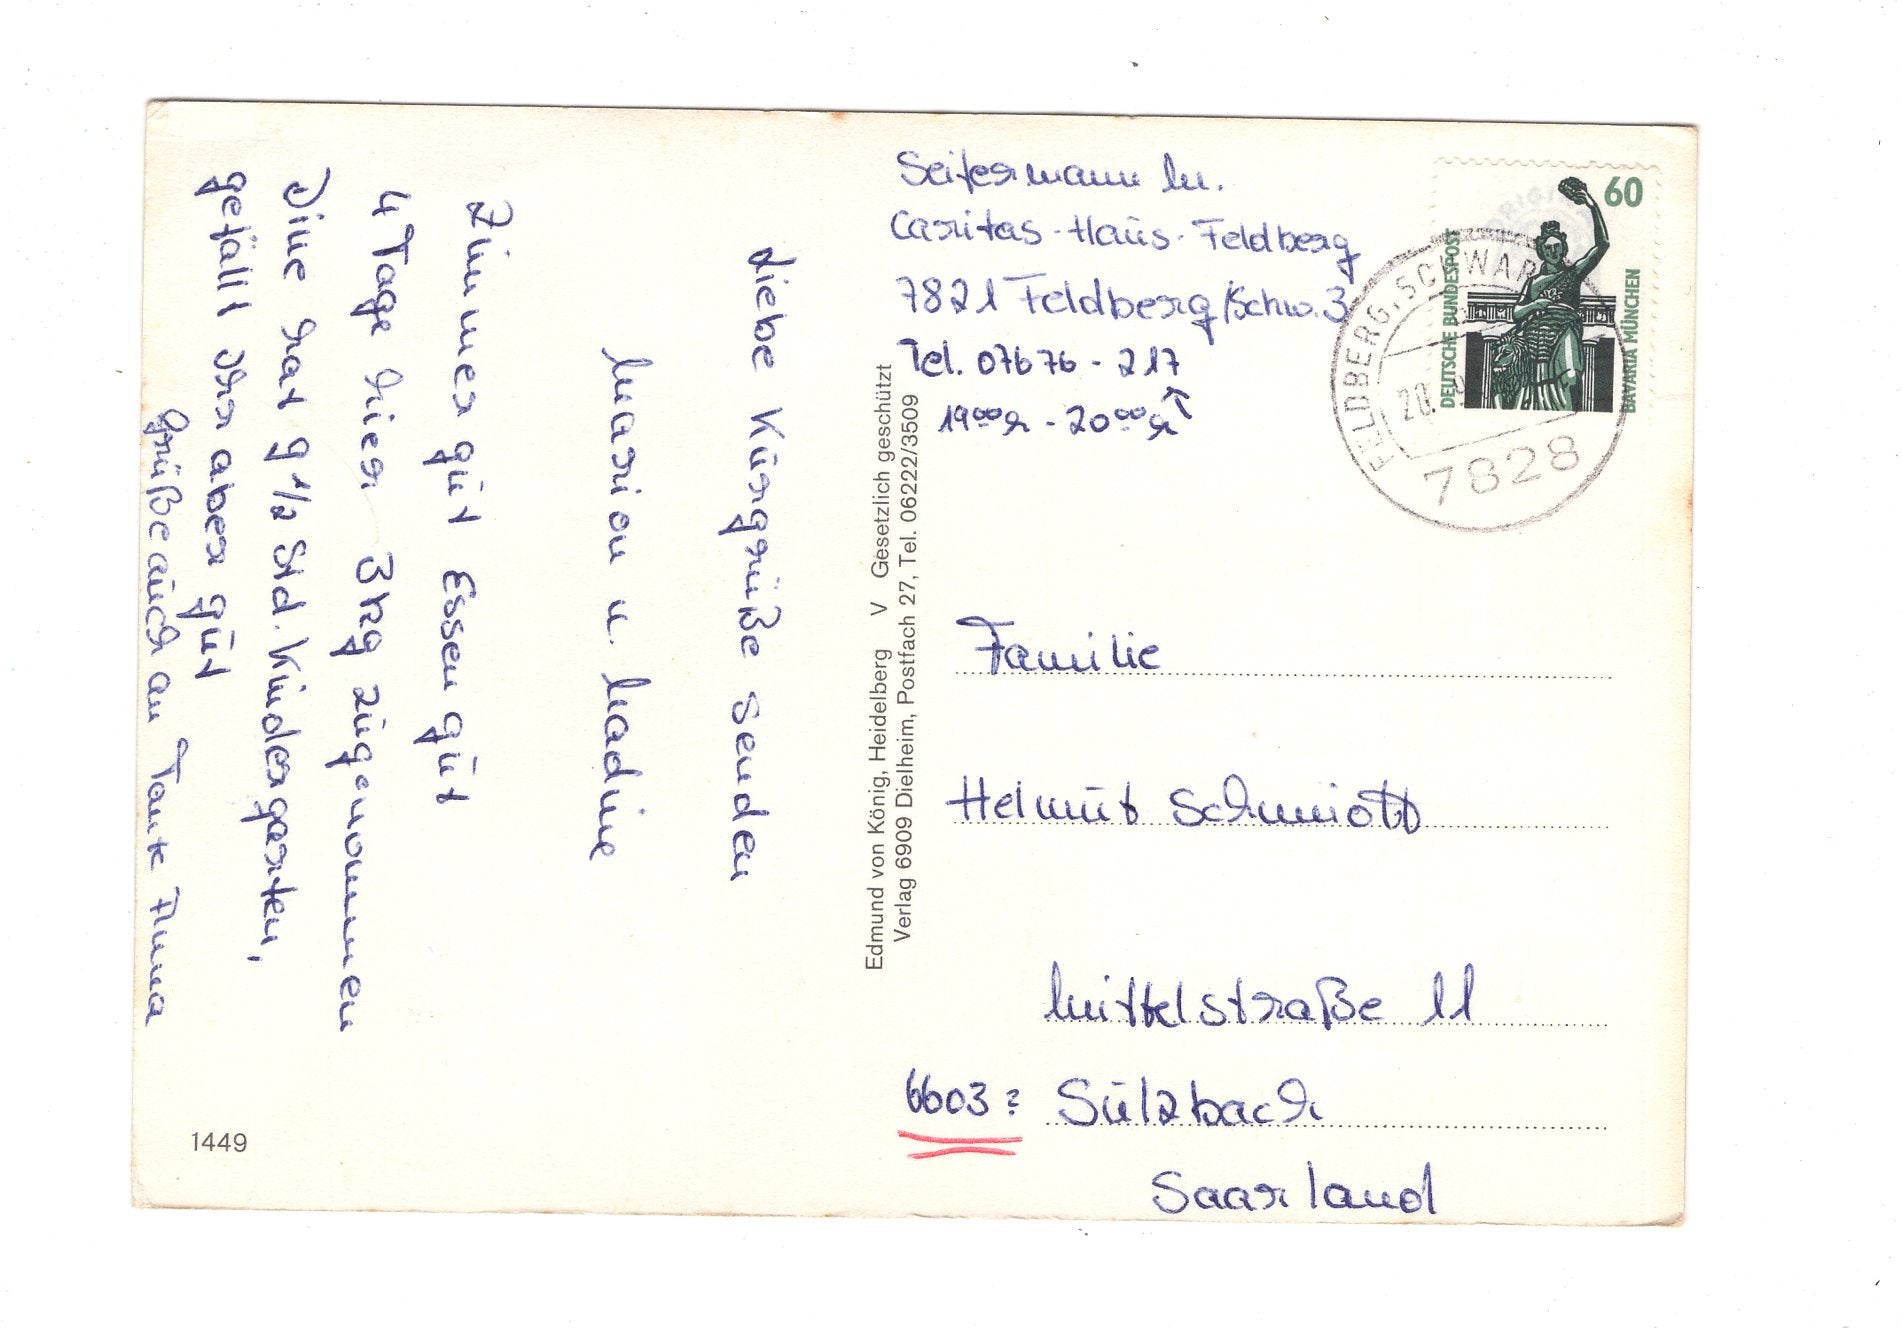 Liebe Kürgrüße senden
Marion u. Nadine
Zimmer güt Essen güt
4 Tage hier 3 kg zügenommen
Dine hat 9 1/2 Std. Kindergarten,
gefällt ihr aber gut
Grüße aüch an Tante Anna
1449
Edmund von König, Heidelberg V Gesetzlich geschützt
Verlag 6909 Dielheim, Postfach 27, Tel. 06222/3509
Seifermann M.
Caritas-Haüs-Feldberg
7821 Feldberg/Schw. 3
Tel. 07676 - 217
19⁰⁰h - 20⁰⁰h
60
DEUTSCHE BUNDESPOST
BAVARIA MÜNCHEN
FELDBERG, SCHWAR
20.
7828
Familie
Helmüt Schmidt
Mittelstraße 11
6603? Sülzbach
Saarland